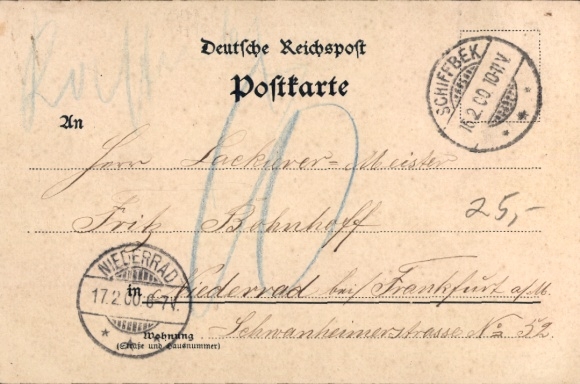 Deutsche Reichspost
Postkarte
SCHIFFBEK
16.2.00.10-11V.
An
Herr Lackirer-Meister
Fritz Bohnhoff
25,-
10
NIEDERRAD
17.2.00.6-7V.
in Niederrad bei Frankfurt a/M.
Schwanheimerstrasse No 52.
Wohnung
(Straße und Hausnummer)